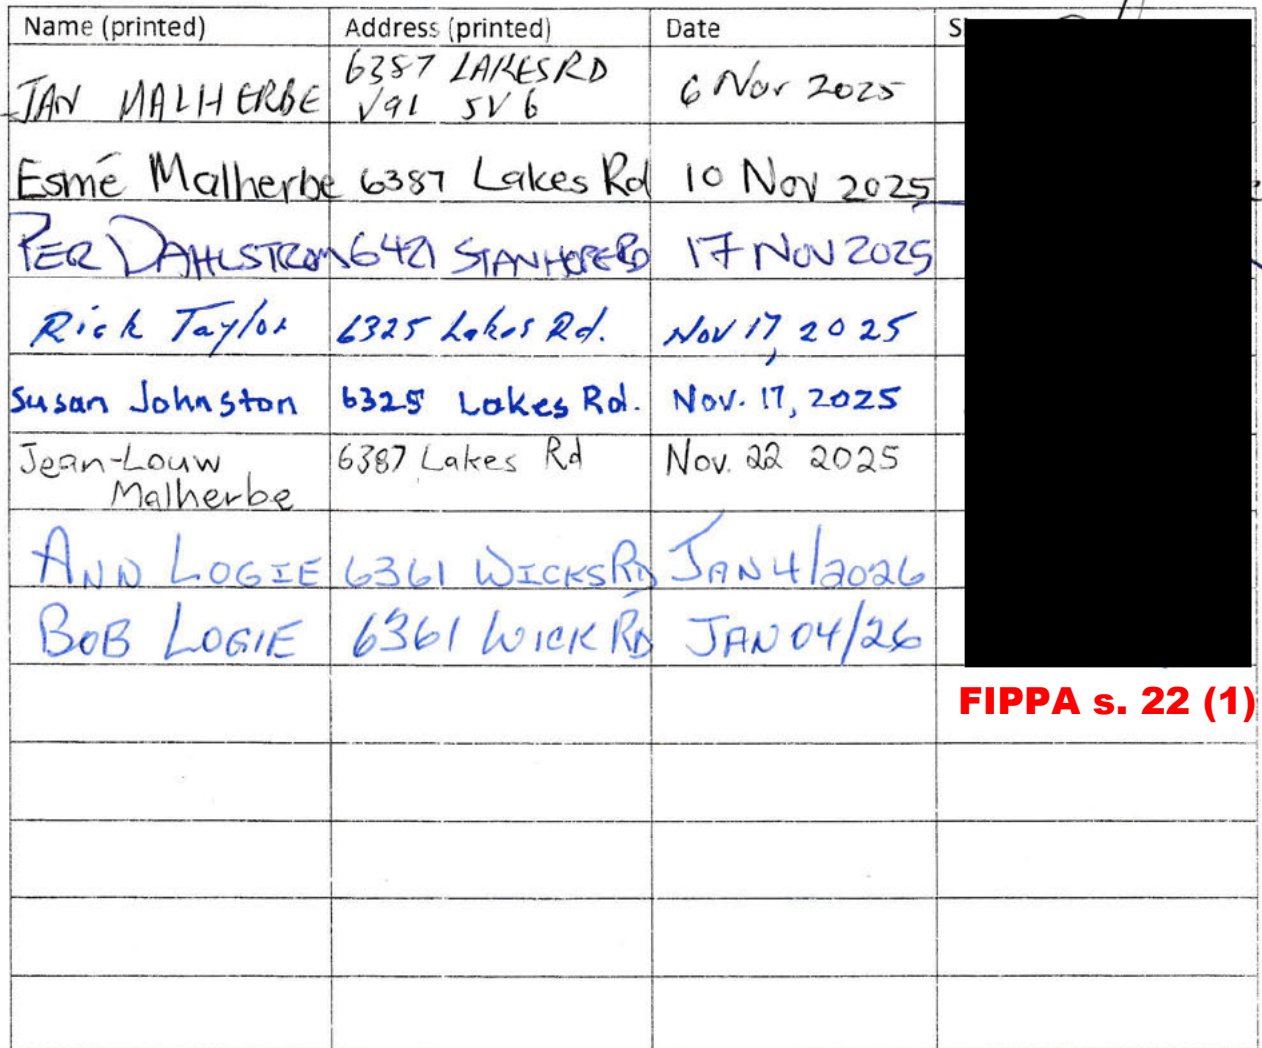 Name (printed) Address (printed) Date S
JAN MALHERBE 6387 LAKES RD 6 Nov 2025
V9L 5V6
Esmé Malherbe 6387 Lakes Rd 10 Nov 2025
PER DAHLSTROM 6421 STANHOPE RD 17 NOV 2025
Rick Taylor 6325 Lakes Rd. Nov 17, 2025
Susan Johnston 6325 Lakes Rd. Nov. 17, 2025
Jean-Louw 6387 Lakes Rd Nov. 22 2025
Malherbe
ANN LOGIE 6361 WICKS RD JAN 4/2026
BOB LOGIE 6361 WICK RD JAN 04/26
FIPPA s. 22 (1)